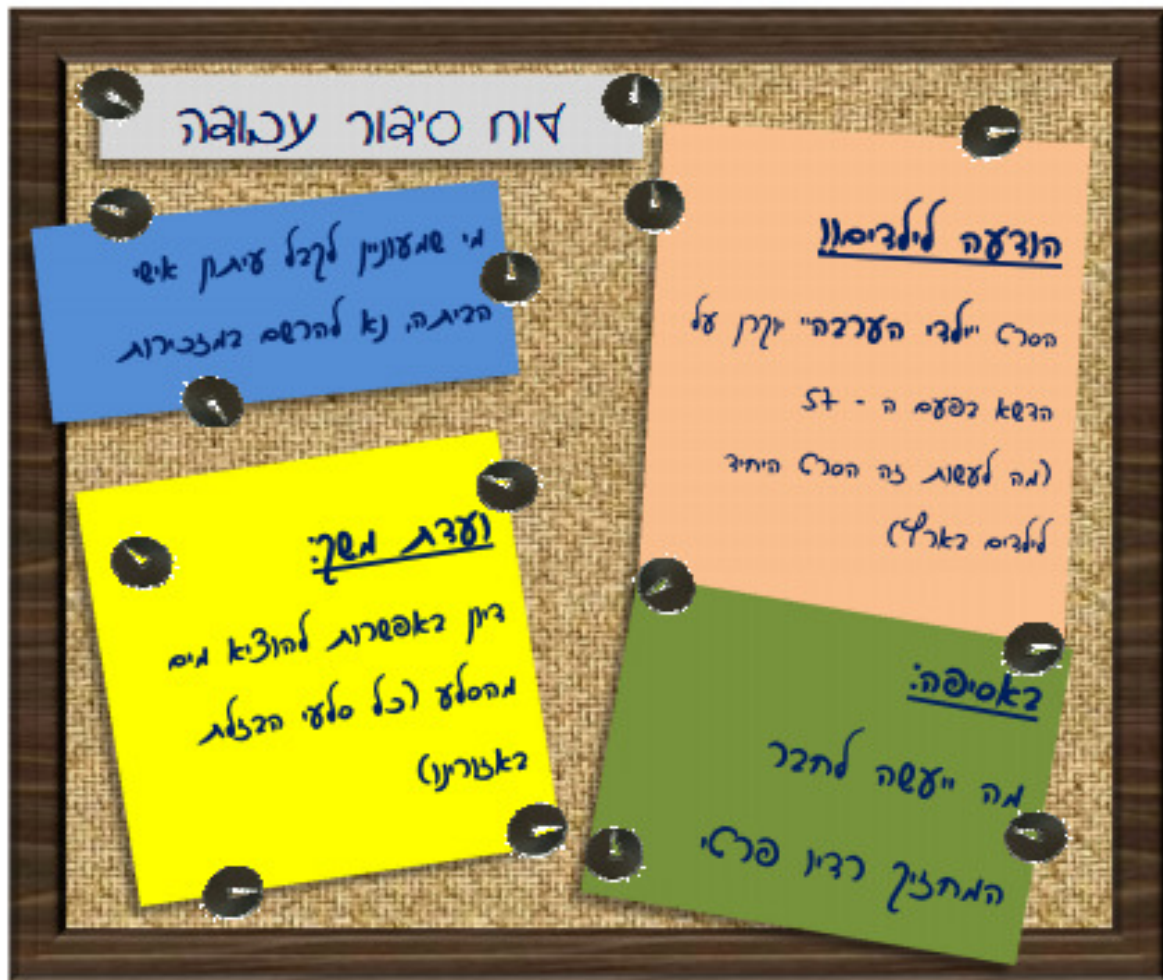 לוח סידור עבודה
הודעה לילדים!!
הסרט "ילדי הערבה" יוקרן על
הדשא בפעם ה - 57
(מה לעשות זה הסרט היחיד
לילדים בארץ)
מי שמעוניין לקבל עיתון אישי
הביתה, נא להרשם במזכירות
ועדת משק:
דיון באפשרות להוציא מים
מהסלע (כל סלעי הבזלת
באזורינו)
באסיפה:
מה ייעשה לחבר
המחזיק רדיו פרטי